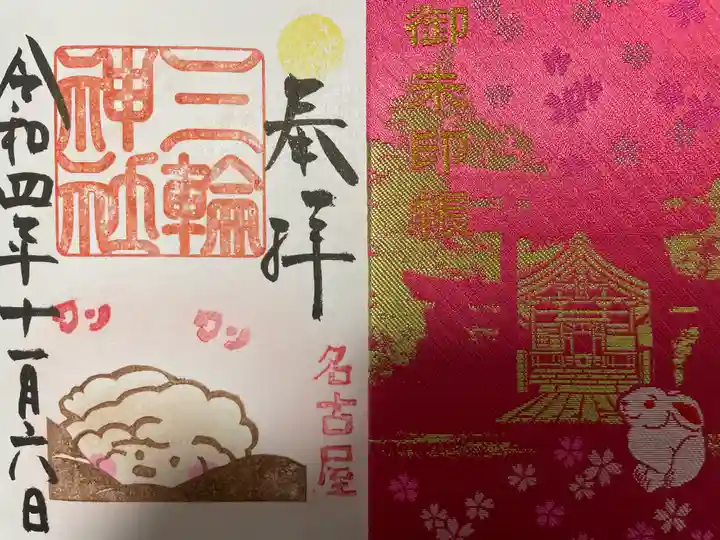 奉拝
三輪
神社
令和四年十一月六日
ワン
ワン
名古屋
御朱印帳